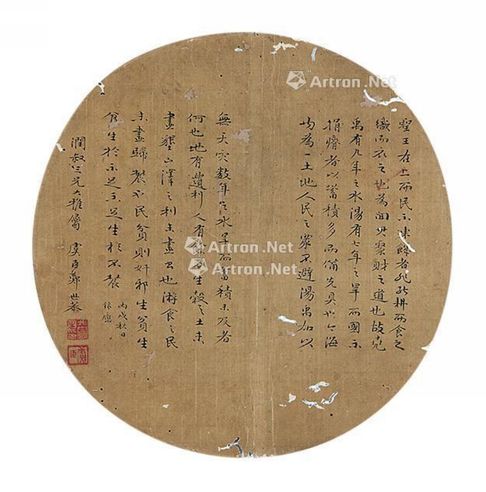 聖王在上而民不凍飢者非能耕而食之
織而衣之也為開其資財之道也故堯
禹有九年之水湯有七年之旱而國亡
捐瘠者以蓄積多而備先具也今海
內為一土地人民之眾不避湯禹加以
無天災數年之水旱而蓄積未及者
何也地有遺利人有餘力生穀之土未
盡墾山澤之利未盡出也游食之民
未盡歸農民貧則奸邪生貧生
於不足不足生於不農
丙戌秋日
潤叔三兄大雅屬 鄭世恭
Artron.Net
Artron.Net
Artron.Net
Artron.Net
Artron.Net
Artron.Net